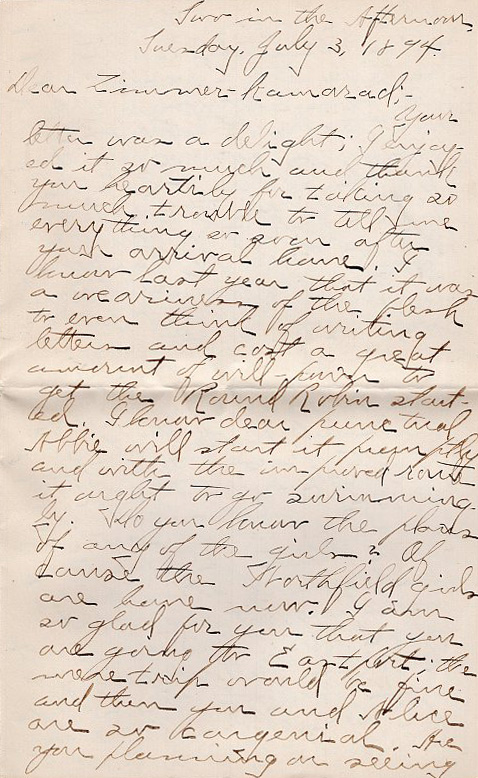 Two in the Afternoon,
Tuesday, July 3, 1894.
Dear Zimmer-kamarad;-
Your
letter was a delight; I enjoy-
ed it so much and thank
you heartily for taking so
much trouble to tell me
everything so soon after
your arrival home. I
know last year that it was
a weariness of the flesh
to even think of writing
letters and cost a great
amount of will-power to
get the Round Robin start-
ed. I know dear punctual
Abbie will start it promptly
and with the improved route
it ought to go swimming-
ly. Do you know the plans
of any of the girls? Of
course the Northfield girls
are home now. I am
so glad for you that you
are going to Eastport; the
mere trip would be fine
and then you and Alice
are so congenial. Are
you planning on seeing